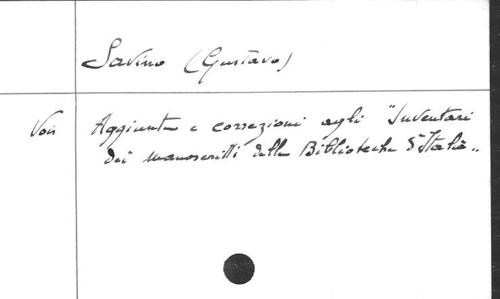 Savino (Gustavo)
Von Aggiunte e correzioni agli "Inventari
dei manoscritti delle Biblioteche d'Italia„